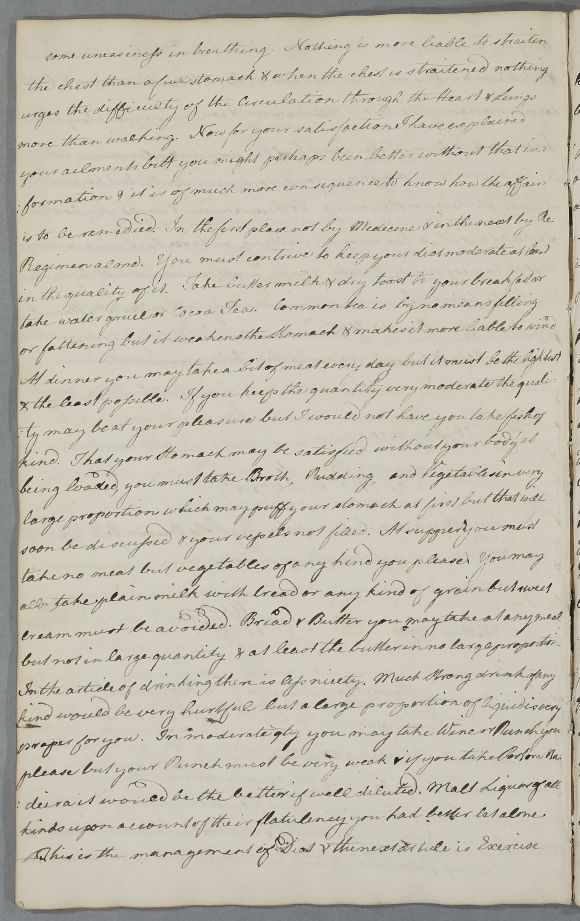 some uneasiness in breathing. Nothing is more liable to straiten
the chest than a full stomach & when the chest is straitened nothing
urges the difficulty of the Circulation through the Heart & Lungs
more than walking. Now for your satisfaction I have explained
your ailments but you might perhaps been better without that in-
:formation & it is of much more consequence to know how the affair
is to be remedied. In the first place not by Medecine & in the next by Re
Regimen alone. You must contrive to keep your diet moderate at least
in the quality of it. Take butter milk & dry toast to your breakfast or
take water gruel or Cocoa Tea. Common tea is by no means filling
or fattening but it weakens the Stomach & makes it more liable to wind
At dinner you may take a bit of meat every day but it must be the lightest
& the least possible. If you keep the quantity very moderate the quali-
:ty may be at your pleasure but I would not have you take fish of
kind. That your Stomach may be satisfied without your body's
being loaded you must take Broth, Pudding and Vegetables in very
large proportion which may puff your stomach at first but that will
soon be discussed & your vessels not filled. At supper you must
take no meat but vegetables of any kind you please. You may
also take plain milk with bread or any kind of grain but sweet
cream must be avoided. Bread & Butter you may take at any meal
but not in large quantity & at least the butter in no large proportion.
In the article of drinking there is less nicety. Much Strong drink of any
kind would be very hurtful but a large proportion of liquid is very
proper for you. In moderate qty you may take Wine or Punch you
please but your Punch must be very weak & if you take Port or Ma-
:deira it would be the better if well diluted. Malt Liquor of all
kinds upon account of their flatulency you had better let alone.
This is the management of Diet & the next article is Exercise